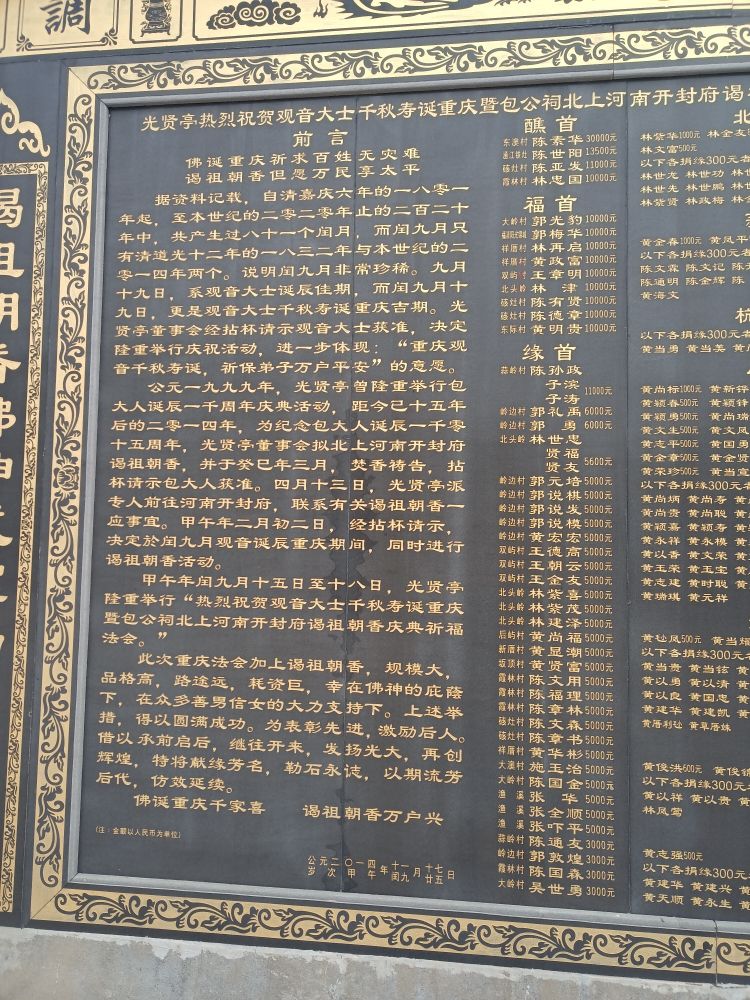 調
光贤亭热烈祝贺观音大士千秋寿诞重庆暨包公祠北上河南开封府谒
前言
佛诞重庆祈求百姓无灾难
谒祖朝香但愿万民享太平
据资料记载，自清嘉庆六年的一八零一
年起，至本世纪的二零二零年止的二百二十
年中，共产生过八十一个闰月，而闰九月只
有清道光十二年的一八三二年与本世纪的二
零一四年两个。说明闰九月非常珍稀。九月
十九日，系观音大士诞辰佳期，而闰九月十
九日，更是观音大士千秋寿诞重庆吉期。光
贤亭董事会经拈杯请示观音大士获准，决定
隆重举行庆祝活动，进一步体现：“重庆观
音千秋寿诞，祈保弟子万户平安”的意愿。
公元一九九九年，光贤亭曾隆重举行包
大人诞辰一千周年庆典活动，距今已十五年
后的二零一四年，为纪念包大人诞辰一千零
十五周年，光贤亭董事会拟北上河南开封府
谒祖朝香，并于癸巳年三月，焚香特告，拈
杯请示包大人获准。四月十三日，光贤亭派
专人前往河南开封府，联系有关谒祖朝香一
应事宜。甲午年二月初二日，经拈杯请示，
决定於闰九月观音诞辰重庆期间，同时进行
谒祖朝香活动。
甲午年闰九月十五日至十八日，光贤亭
隆重举行“热烈祝贺观音大士千秋寿诞重庆
暨包公祠北上河南开封府谒祖朝香庆典祈福
法会。”
此次重庆法会加上谒祖朝香，规模大，
品格高，路途远，耗资巨，幸在佛神的庇荫
下，在众多善男信女的大力支持下。上述举
措，得以圆满成功。为表彰先进，激励后人。
借以承前启后，继往开来，发扬光大，再创
辉煌，特将献缘芳名，勒石永志，以期流芳
后代，仿效延续。
佛诞重庆千家喜　谒祖朝香万户兴
（注：金额以人民币为单位）
公元二〇一四年十一月十七日
岁次甲午年闰九月廿五日
醮首
东澳村 陈素华 30000元
陈世阳 13500元
陈亚发 11000元
霞林村 林忠国 10000元
福首
大岭村 郭光豹 10000元
郭梅华 10000元
祥厝村 林再启 10000元
祥厝村 黄政富 10000元
双屿村 王章明 10000元
北头岭 林津 10000元
陈有贤 10000元
陈德章 10000元
东际村 黄明贵 10000元
缘首
蒜岭村 陈孙政
子滨 11000元
子涛
岭边村 郭礼禹 6000元
岭边村 郭勇 6000元
北头岭 林世忠
贤福 5600元
贤友
岭边村 郭元培 5000元
岭边村 郭说棋 5000元
岭边村 郭说发 5000元
岭边村 郭说模 5000元
岭边村 黄宏宏 5000元
双屿村 王德高 5000元
双屿村 王朝云 5000元
双屿村 王金友 5000元
北头岭 林紫喜 5000元
北头岭 林紫茂 5000元
北头岭 林建泽 5000元
后屿村 黄尚福 5000元
新厝村 黄显潮 5000元
坂顶村 黄贤富 5000元
霞林村 陈文用 5000元
霞林村 陈福理 5000元
霞林村 陈章林 5000元
陈文森 5000元
陈章书 5000元
祥厝村 黄华彬 5000元
大澳村 施玉治 5000元
大岭村 陈国金 5000元
渔溪 张华 5000元
渔溪 张全顺 5000元
渔溪 张吓平 5000元
蒜岭村 陈通友 3000元
岭边村 郭敦煌 3000元
霞林村 陈国森 3000元
大岭村 吴世勇 3000元
北
林紫华 1000元 林金友
林文富 500元
以下各捐缘300元
林世龙 林世功 林世
林世先 林世鹏 林世
林紫贤 林政梅 林
黄金春 1000元 黄凤平
以下各捐缘300元
陈文霖 陈文记 陈
陈通明 陈金辉 陈
黄海文
杭
以下各捐缘300元
黄当勇 黄当美 黄
黄尚标 1000元 黄新锋
黄颖春 500元 黄颖锋
黄颖勇 500元 黄尚瑞
黄文生 500元 黄文凤
黄志平 500元 黄国勇
黄金章 500元 黄金贤
黄荣珍 500元 黄当宜
以下各捐缘300元
黄尚炳 黄尚寿 黄
黄尚贵 黄尚聪 黄
黄颖嘉 黄颖寿 黄
黄永祥 黄永模 黄
黄以香 黄文荣 黄
黄玉荣 黄玉宝 黄
黄志建 黄时聪 黄
黄瑞琪 黄元祥
以下各捐缘300元
黄当贵 黄当铉 黄
黄以勇 黄以清 黄
黄以良 黄国忠 黄
黄建华 黄建凯 黄
黄俊洪 600元 黄俊
以下各捐缘300元
黄以祥 黄以贵 黄
林凤莺
黄志强 500元
以下各捐缘300元
黄建华 黄建兴 黄
黄天顺 黄永生 黄
谒祖朝香佛神